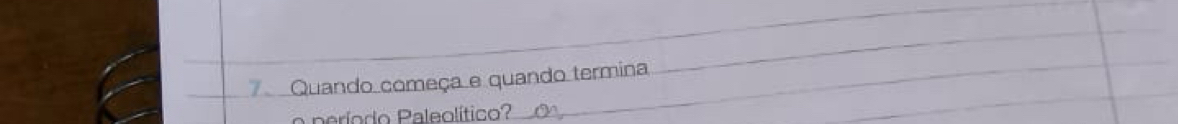 7. Quando começa e quando termina
o período Paleolítico?